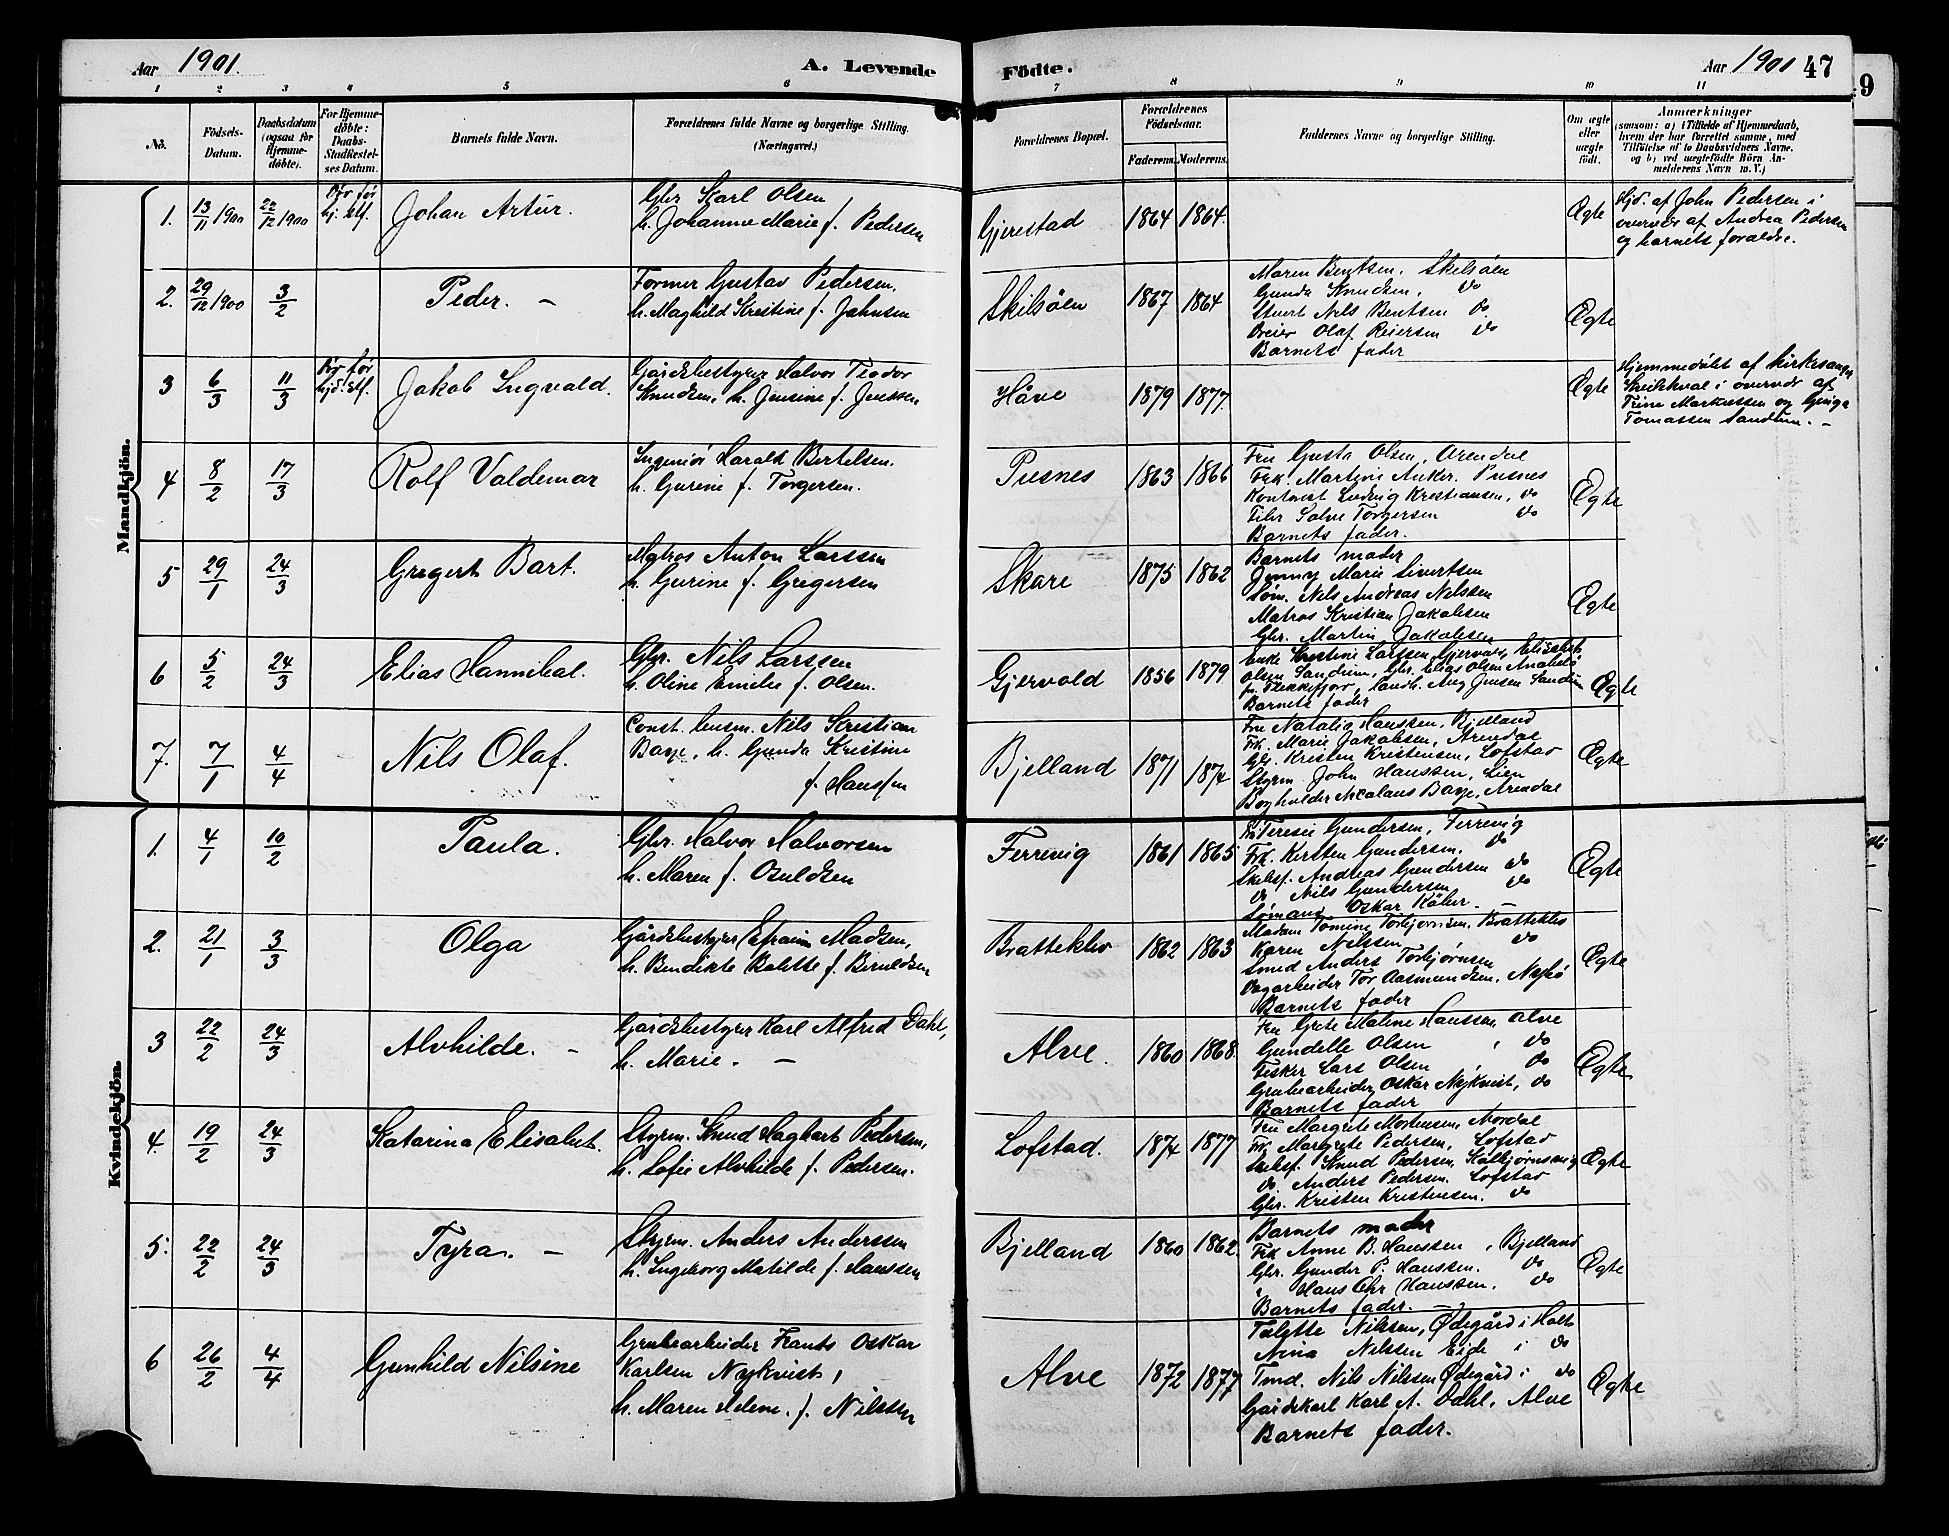 Aar 1901. A. Levende
Födte. Aar 1901 47
9
1 2 3 4 5 6
7 8 9 10 11
No.
Födsels-
Datum.
Daabsdatum
(ogsaa for
Hjemme-
döbte).
For Hjemme-
döbte:
Daabs-
Stadfæstel-
ses Datum.
Barnets fulde Navn.
Forældrenes fulde Navne og borgerlige Stilling.
(Næringsvei.)
Forældrenes Bopæl.
Forældrenes
Födselsaar.
Faderens. Moderens.
Faddernes Navne og borgerlige Stilling.
Om ægte
eller
uægte
født.
Anmærkninger
(saasom: a) i Tilfælde af Hjemmedaab,
hvem der har forrettet samme, med
Tilföielse af to Daabsvidners Navne.
og b) ved uægtefödte Börn An-
melderens Navn m. V.)
Mandkjön.
1. 13/11 1900 22/12 1900 Dör før
hj. stf. Johan Artur.
Gbr Karl Olsen
h. Johanne Marie f. Pedersen
Gjerestad 1864 1864. Ægte
Hjd. af John Pedersen i
overvær af Andrea Pedersen
og barnets forældre.
2. 29/12 1900 3/2 Peder. -
Former Gustav Pedersen.
h. Maghild Kristine f. Jahnsen
Skilsöen 1867 1864
Maren Bentsen. Skilsöen
Gunda Knudsen. do
Stuert Nils Bentsen do
Dreier Olaf Reiersen do
Barnets fader
Ægte
3 6/3 11/3 Dör før
hjd. stf. Jakob Ingvald.
Gårdsbestyrer Halvor Teodor
Knudsen, h. Jensine f. Jenssen
Håve 1879 1877. Ægte
Hjemmedøbt af kirkesanger
i overvær af
Trine Markussen og
Tomassen Sandum. -
4 8/2 17/3 Rolf Valdemar
Ingeniör Harald Bertelsen.
h. Gurine f. Torgersen.
Pusnes 1863 1866
Fru Gusta Olsen, Arendal
Frk. Martine Anker. Pusnes
Kontorist Ludvig Kristiansen, do
Filer Salve Torgersen do
Barnets fader.
Ægte
5 29/1 24/3 Gregert Bart.
Matros Anton Larssen
h. Gurine f. Gregersen
Skare 1875 1862
Barnets moder
Jenny Marie Sivertsen
Söm. Nils Andreas Nilssen
Matros Kristian Jakobsen
Gbr. Martin Jakobsen
Ægte
6 5/2 24/3 Elias Hannibal.
Gbr. Nils Larssen
h. Oline Emilie f. Olsen.
Gjervold 1856 1879
Enke Kristine Larssen Gjervold, Elisabet
Olsen Sandum, Gbr. Elias Olsen
Flekkefjor, Landh. Aug Jensen Sandum
Barnets fader
Ægte
7. 7/1 4/4 Nils Olaf.
Const. lensm. Nils Kristian
Baye, h. Gunda Kristine
f. Hanssen
Bjelland 1871 1874
Fru Natalia Hanssen, Bjelland
Frk. Marie Jakobsen, Arendal
Gbr. Kristen Kristensen, Lofstad
Styrm. John Hanssen, Lien
Bogholder Nicolaus Baye, Arendal
Ægte
Kvindekjön.
1. 4/1 10/2 Paula.
Gbr. Halvor Halvorsen
h. Maren f. Osuldsen
Ferrevig 1861 1865
Gundersen, Ferrevig
Frk. Kersten Gundersen. do
Skibsf. Andreas Gundersen do
do Nils Gundersen do
Sömand Oskar -
Ægte
2. 21/1 3/3 Olga
Gårdsbestyrer Efraim Madsen,
h. Bendikte Bolette f. Beruldsen
Bratteklev 1862 1863
Madam Tomine Torbjørnsen. Bratteklev
Karen Nelssen do
Smed Anders Torbjørnsen
Dagarbeider Tor Aasmundsen, Nesbö
Barnets fader
Ægte
3 22/2 24/3 Alvhilde. -
Gårdsbestyrer Karl Alfred Dahl,
h. Marie. -
Alve. 1860 1868.
Fru Grete Maline Hanssen, Alve
Gundelle Olsen, do
Fisker Lars Olsen do
Grubearbeider Oskar Nykvist, do
Barnets fader
Ægte
4. 19/2 24/3 Katarina Elisabet.
Styrm. Knud Haghart Pedersen,
h. Lofie Alvhilde f. Pedersen.
Lofstad. 1874 1877
Fru Margrete Mortensen, Nordal
Frk Margrete Pedersen, Lofstad
Skibsf. Knud Pedersen, Kolbjørnsvig
do. Anders Pedersen. Lofstad
Gbr. Kristen Kristensen. do
Ægte
5. 22/2 24/3 Tyra. -
Styrm. Anders Anderssen
h. Ingeborg Matilde f. Hanssen
Bjelland 1860 1862.
Barnets moder
Frk Anne B. Hanssen, Bjelland
Gbr. Gunder P. Hanssen. do
" Hans Chr Hanssen. do
Barnets fader.
Ægte
6 26/2 4/4 Gunhild Nilsine
Grubearbeider Frants Oskar
Karlsen Nykvist,
h. Maren Helene. f. Nilssen
Alve 1872 1877
Talette Nilssen, Ødegård i Holt
Nina Nelssen Eige i do
Tmd. Nils Nilssen Ødegård i do
Gårdskarl Karl A. Dahl, Alve
Barnets fader.
Ægte